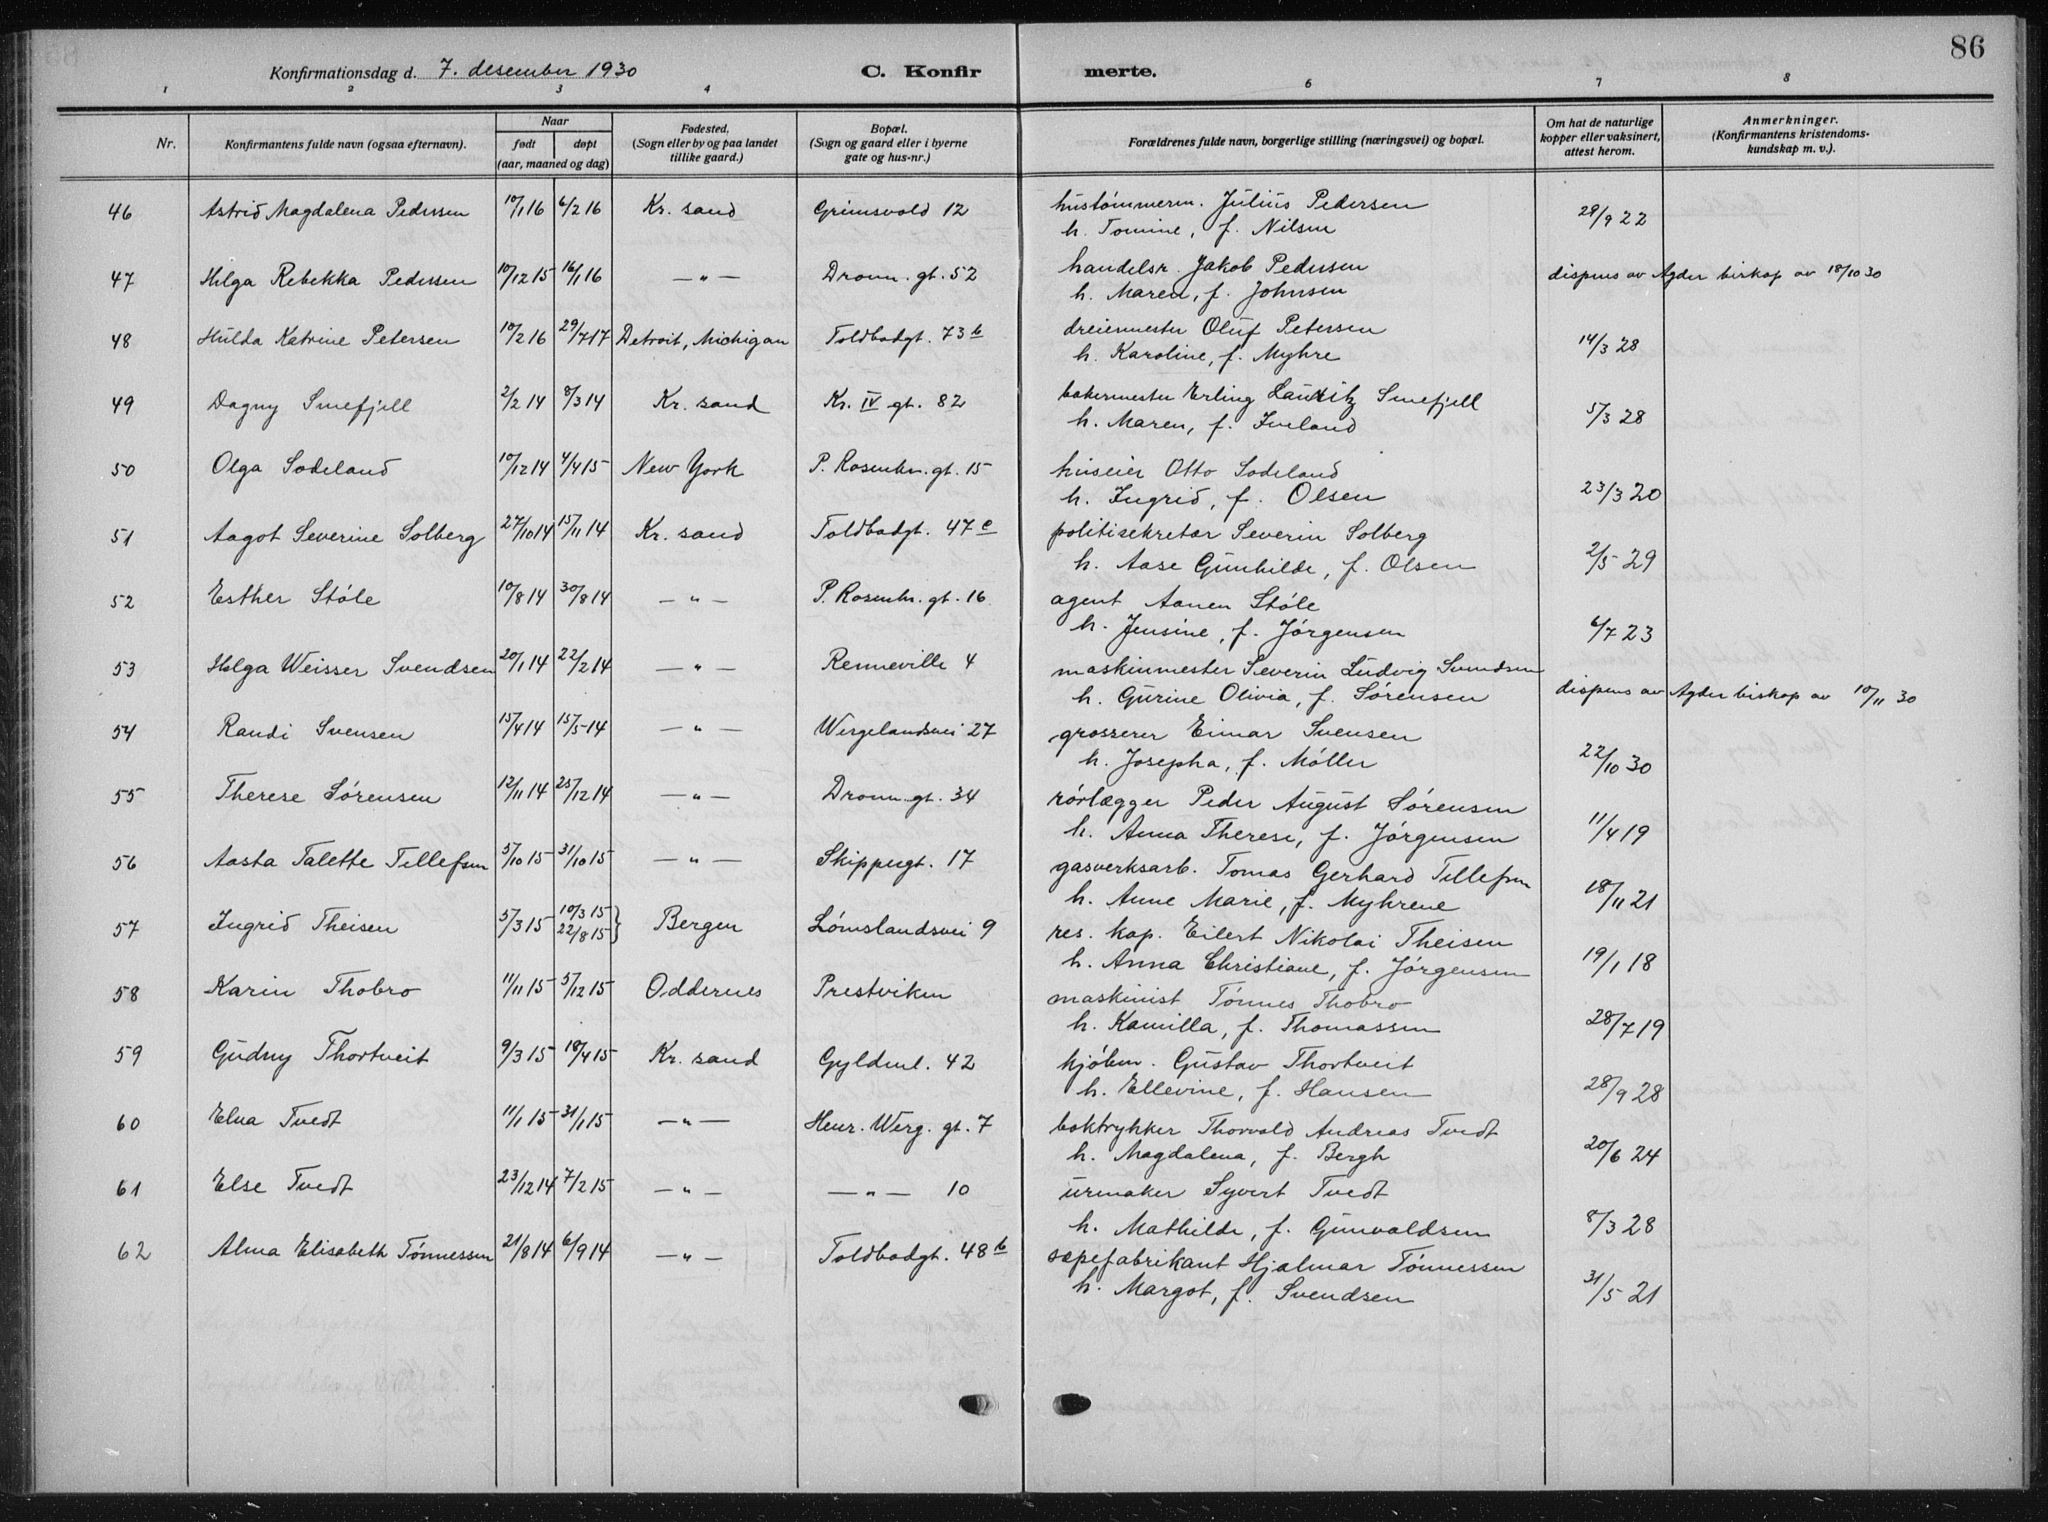 86
Konfirmationsdag d. 7. desember 1930 C. Konfir merte.
1 2 3 4 6 7 8
Nr. Konfirmantens fulde navn (ogsaa efternavn). Naar født døpt (aar, maaned og dag) Fødested. (Sogn eller by og paa landet tillike gaard.) Bopæl. (Sogn og gaard eller i byerne gate og hus-nr.) Forældrenes fulde navn, borgerlige stilling (næringsvei) og bopæl. Om hat de naturlige kopper eller vaksinert, attest herom. Anmerkninger. (Konfirmantens kristendomskundskap m. v.).
46 Astrid Magdalena Pedersen 10/1 16 6/2 16 Kr. sand Grimsvold 12 hustømmerm. Julius Pedersen
h. Tomine, f. Nilsen 29/9 22
47 Helga Rebekka Pedersen 10/12 15 16/1 16 — " — Dronn. gt. 52 handelsr. Jakob Pedersen
h. Maren, f. Johnsen dispens av Agder biskop av 18/10 30
48 Hulda Katrine Petersen 10/2 16 29/7 17 Detroit, Michigan Toldbodgt. 73 b dreiermester Oluf Petersen
h. Karoline, f. Myhre 14/3 28
49 Dagny Smefjell 2/2 14 8/3 14 Kr. sand Kr. IV gt. 82 bakermester Erling Lauritz Smefjell
h. Maren, f. Iveland 5/3 28
50 Olga Sodeland 10/12 14 4/4 15 New York P. Rosenkr. gt. 15 huseier Otto Sodeland
h. Ingrid, f. Olsen 23/3 20
51 Aagot Severine Solberg 27/10 14 15/11 14 Kr. sand Toldbodgt. 47 c politisekretær Severin Solberg
h. Aase Gunhilde, f. Olsen 2/5 29
52 Esther Støle 10/8 14 30/8 14 — " — P. Rosenkr. gt. 16 agent Aanen Støle
h. Jensine, f. Jørgensen 6/7 23
53 Helga Weisser Svendsen 20/1 14 22/2 14 — " — Renneville 4 maskinmester Severin Ludvig Svendsen
h. Gurine Olivia, f. Sørensen dispens av Agder biskop av 10/11 30
54 Randi Svensen 15/4 14 15/5 14 — " — Wergelandsvei 27 grosserer Einar Svensen
h. Josepha, f. Møller 22/10 30
55 Therese Sørensen 12/11 14 25/12 14 — " — Dronn. gt. 34 rørlægger Peder August Sørensen
h. Anna Therese, f. Jørgensen 11/4 19
56 Aasta Talette Tellefsen 5/10 15 31/10 15 — " — Skippergt. 17 gasverksarb. Tomas Gerhard Tellefsen
h. Anne Marie, f. Myhrene 18/11 21
57 Ingrid Theisen 5/3 15 10/3 15 22/8 15 } Bergen Lømslandsvei 9 res. kap. Eilert Nikolai Theisen
h. Anna Christiane, f. Jørgensen 19/1 18
58 Karin Thobro 11/11 15 5/12 15 Oddernes Prestviken maskinist Tønnes Thobro
h. Kamilla, f. Thomassen 28/7 19
59 Gudny Thortveit 9/3 15 18/4 15 Kr. sand Gyldenl. 42 kjøbm. Gustav Thortveit
h. Ellevine, f. Hansen 28/9 28
60 Elna Tvedt 11/1 15 31/1 15 — " — Henr. Werg. gt. 7 boktrykker Thorvald Andreas Tvedt
h. Magdalena, f. Bergh 20/6 24
61 Else Tvedt 23/12 14 7/2 15 — " — — " — 10 urmaker Syvert Tvedt
h. Mathilde, f. Gunvaldsen 8/3 28
62 Alma Elisabeth Tønnessen 21/8 14 6/9 14 — " — Toldbodgt. 48 b sæpefabrikant Hjalmar Tønnessen
h. Margot, f. Svendsen 31/5 21